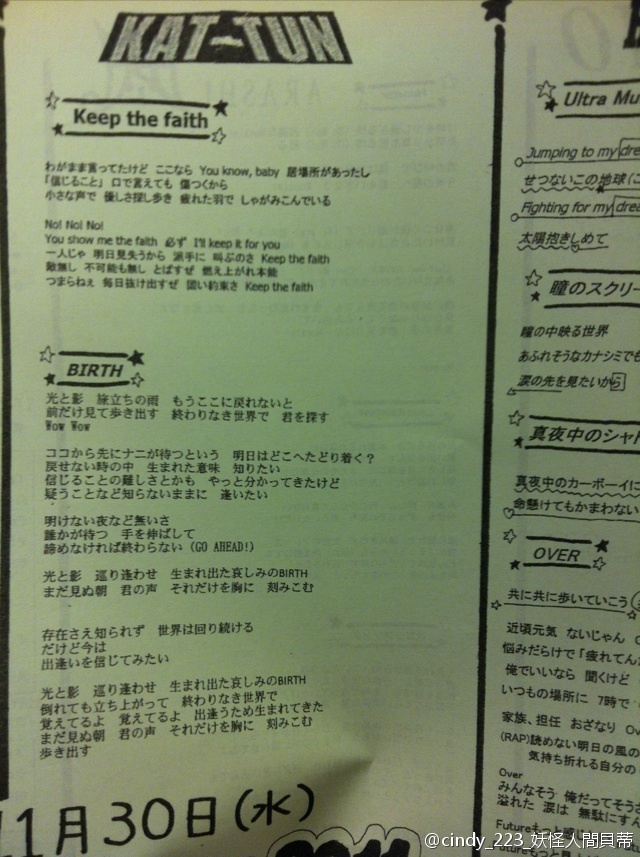 KAT-TUN
Keep the faith
わがまま言ってたけど ここなら You know, baby 居場所があったし
「信じること」 口で言えても 傷つくから
小さな声で 優しさ探し歩き 疲れた羽で しゃがみこんでいる
No! No! No!
You show me the faith 必ず I'll keep it for you
一人じゃ 明日見失うから 派手に 叫ぶのさ Keep the faith
敵無し 不可能も無し とばすぜ 燃え上がれ本能
つまらねぇ 毎日抜け出すぜ 固い約束さ Keep the faith
BIRTH
光と影 旅立ちの雨 もうここに戻れないと
前だけ見て歩き出す 終わりなき世界で 君を探す
Wow Wow
ココから先にナニが待つという 明日はどこへたどり着く？
戻せない時の中 生まれた意味 知りたい
信じることの難しさとかも やっと分かってきたけど
疑うことなど知らないままに 逢いたい
明けない夜など無いさ
誰かが待つ 手を伸ばして
諦めなければ終わらない (GO AHEAD!)
光と影 巡り逢わせ 生まれ出た哀しみのBIRTH
まだ見ぬ朝 君の声 それだけを胸に 刻みこむ
存在さえ知られず 世界は回り続ける
だけど今は
出逢いを信じてみたい
光と影 巡り逢わせ 生まれ出た哀しみのBIRTH
倒れても立ち上がって 終わりなき世界で
覚えてるよ 覚えてるよ 出逢うため生まれてきた
まだ見ぬ朝 君の声 それだけを胸に 刻みこむ
歩き出す
11月30日(水)
Ultra Mu
Jumping to my dre
せつないこの地球(こ
Fighting for my drea
太陽抱きしめて
瞳のスクリー
瞳の中映る世界
あふれそうなカナシミでも
涙の先を見たいから
真夜中のシャ
真夜中のカーボーイに
命懸けてもかまわない
OVER
共に共に歩いていこう
近頃元気 ないじゃん
悩みだらけで「疲れてん
俺でいいなら 聞くけど
いつもの場所に 7時で
家族、担任 おざなり Ov
(RAP)読めない明日の風の
気持ち折れる自分の
Over
みんなそう 俺だってそうさ
溢れた 涙は 無駄にすん
Futureもっと感じ
@cindy_223_妖怪人間貝蒂